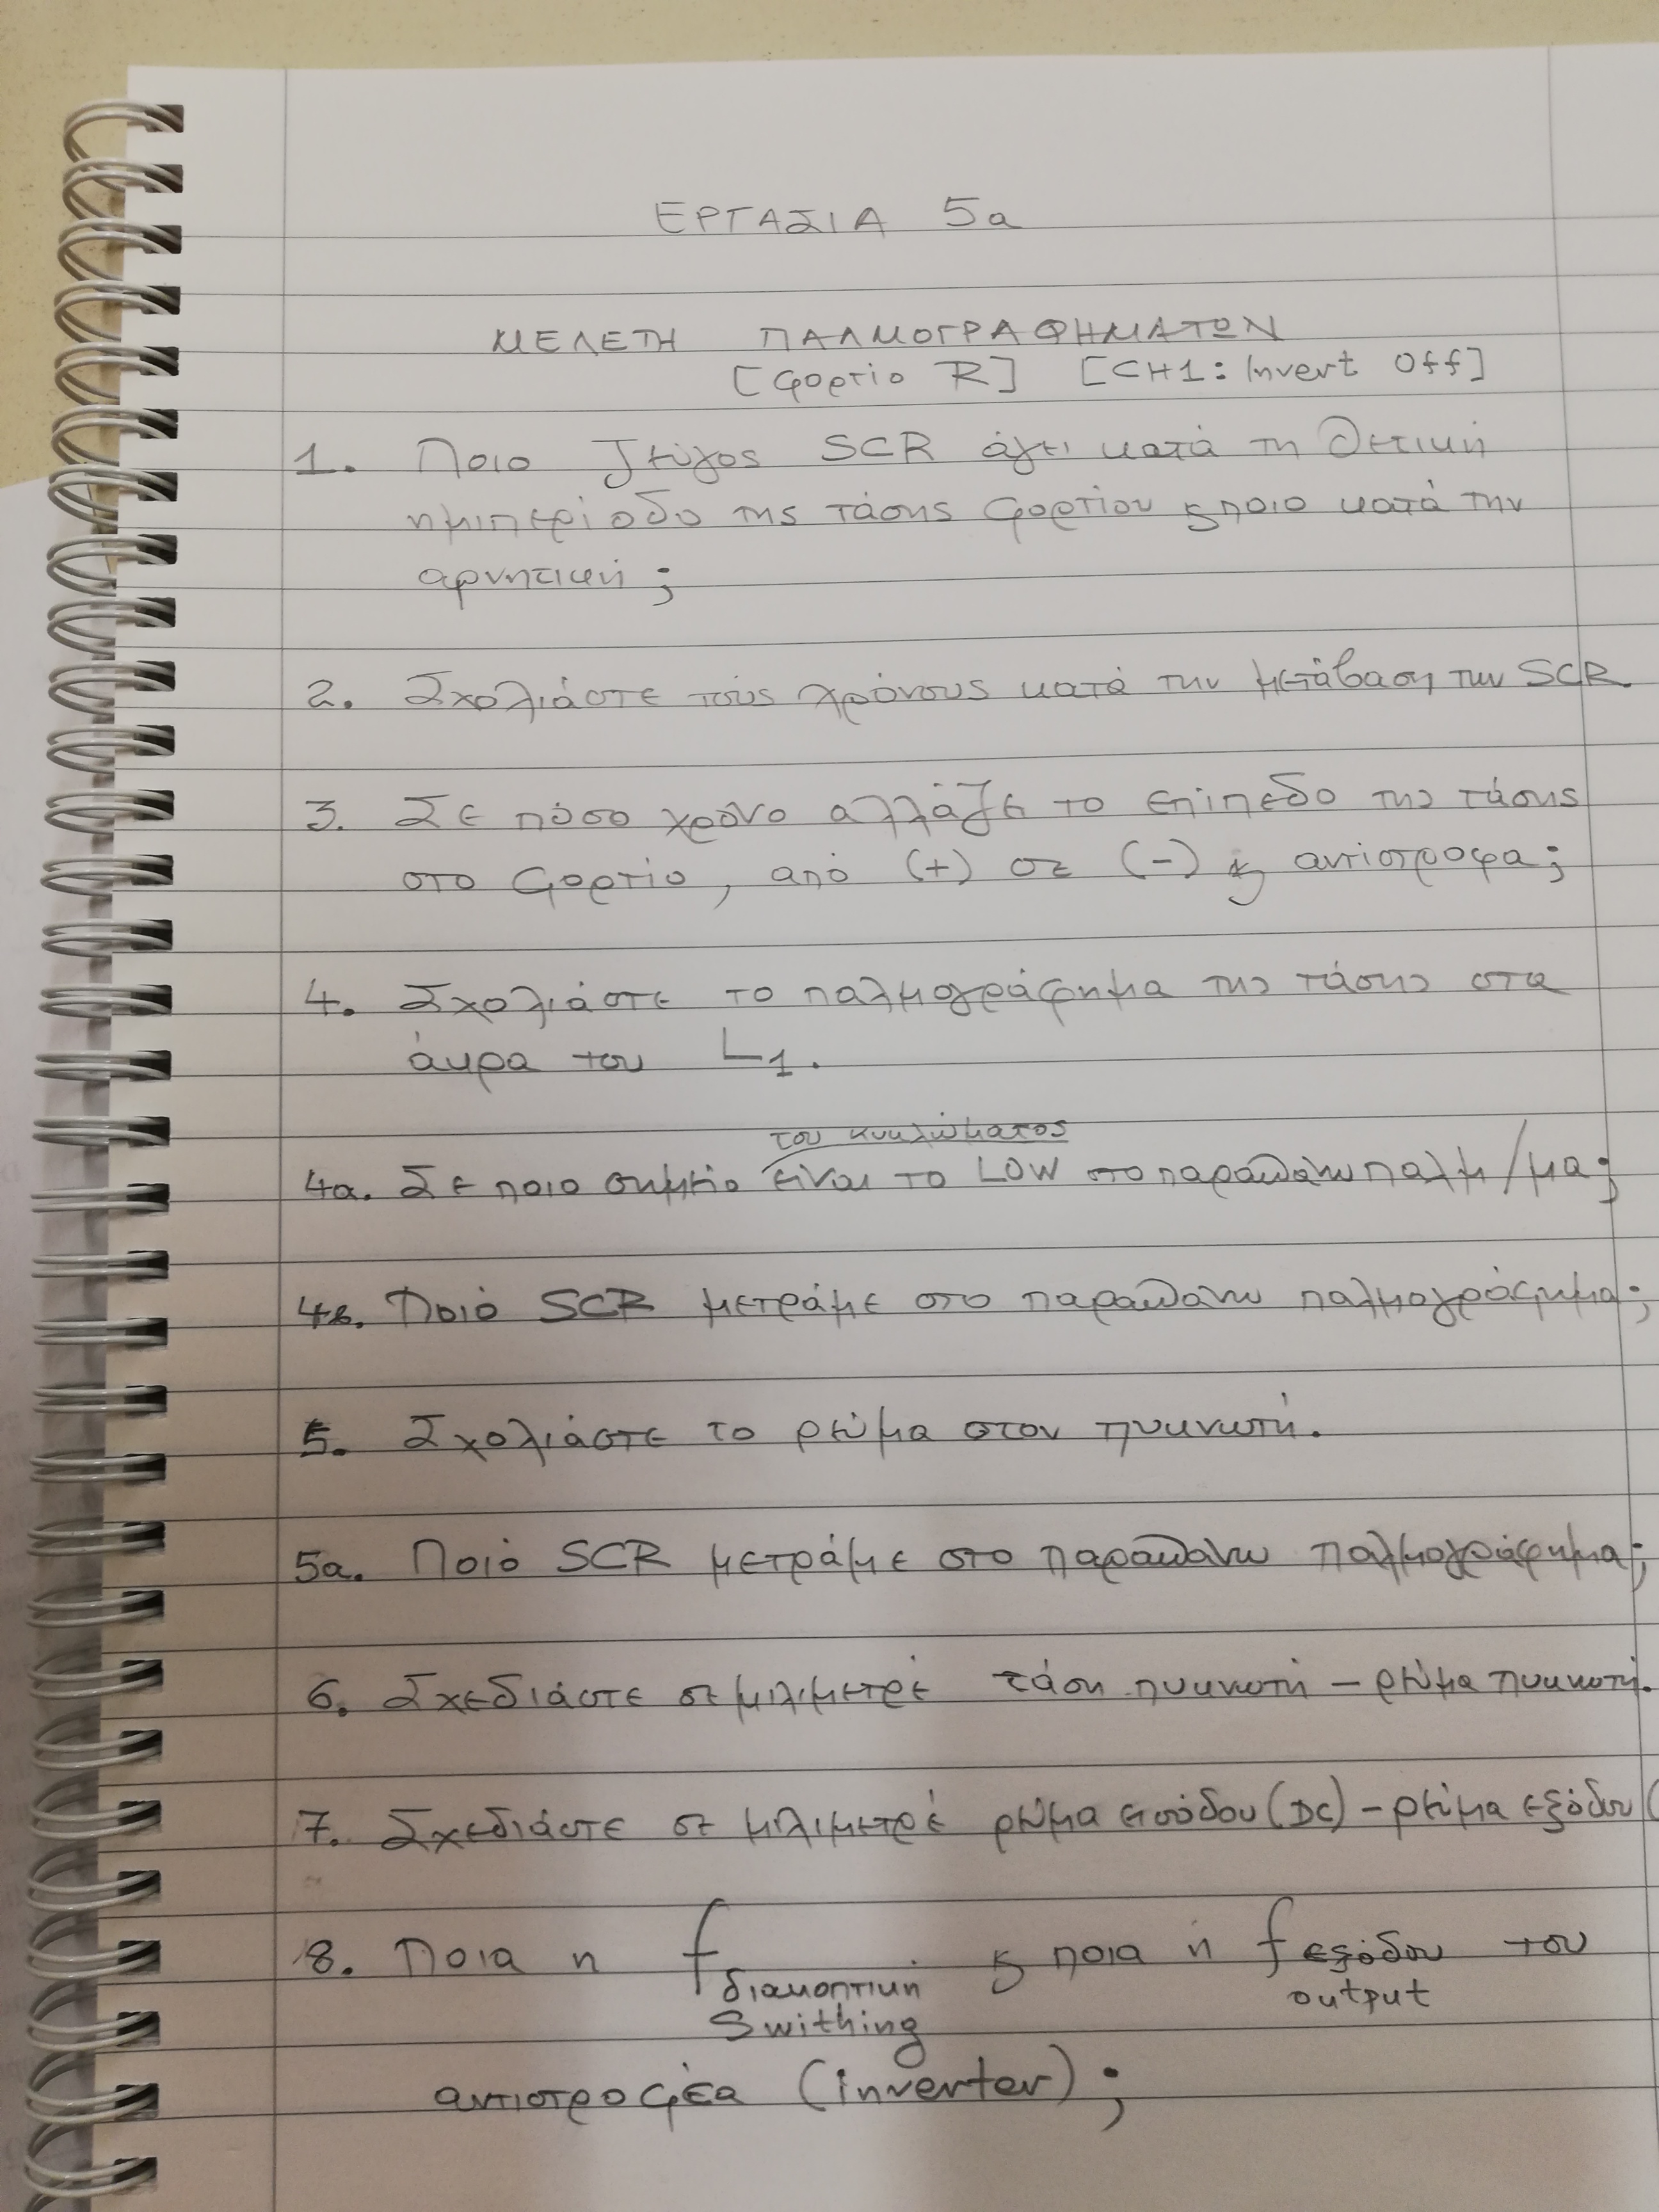 ΕΡΓΑΣΙΑ 5α
ΜΕΛΕΤΗ ΠΑΛΜΟΓΡΑΦΗΜΑΤΩΝ
[φορτίο R] [CH1: Invert Off]
1. Ποιο ζεύγος SCR άγει κατά τη θετική
ημιπερίοδο της τάσης φορτίου ϗ ποιο κατά την
αρνητική;
2. Σχολιάστε τους χρόνους κατά την μετάβαση των SCR
3. Σε πόσο χρόνο αλλάζει το επίπεδο της τάσης
στο φορτίο, από (+) σε (-) ϗ αντιστροφα;
4. Σχολιάστε το παλμογράφημα της τάσης στα
άκρα του L1.
του κυκλώματος
4α. Σε ποιο σημείο είναι το LOW στο παραπάνω παλμ/μα;
4β. Ποιό SCR μετράμε στο παραπάνω παλμογράφημα;
5. Σχολιάστε το ρεύμα στον πυκνωτή.
5α. Ποιό SCR μετράμε στο παραπάνω παλμογράφημα;
6. Σχεδιάστε σε μιλιμετρέ τάση πυκνωτή – ρεύμα πυκνωτή.
7. Σχεδιάστε σε μιλιμετρέ ρεύμα εισόδου (DC) – ρεύμα εξόδου (
8. Ποια η f διακοπτική ϗ ποια η f εξόδου του
Swithing output
αντιστροφέα (inverter);